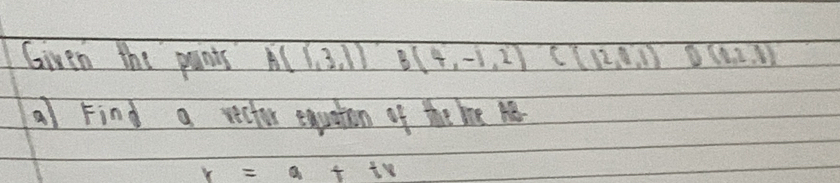 Given the points A(1,3,1) B(4,-1,2)
a) Find a vector equation of the line AB
r = a + tv